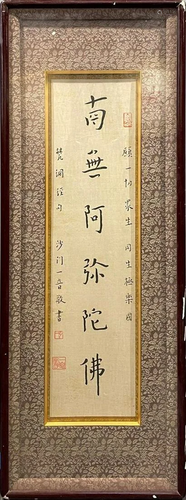 願一切眾生 同生極樂國
南無阿弥陀佛
沙門一音敬書